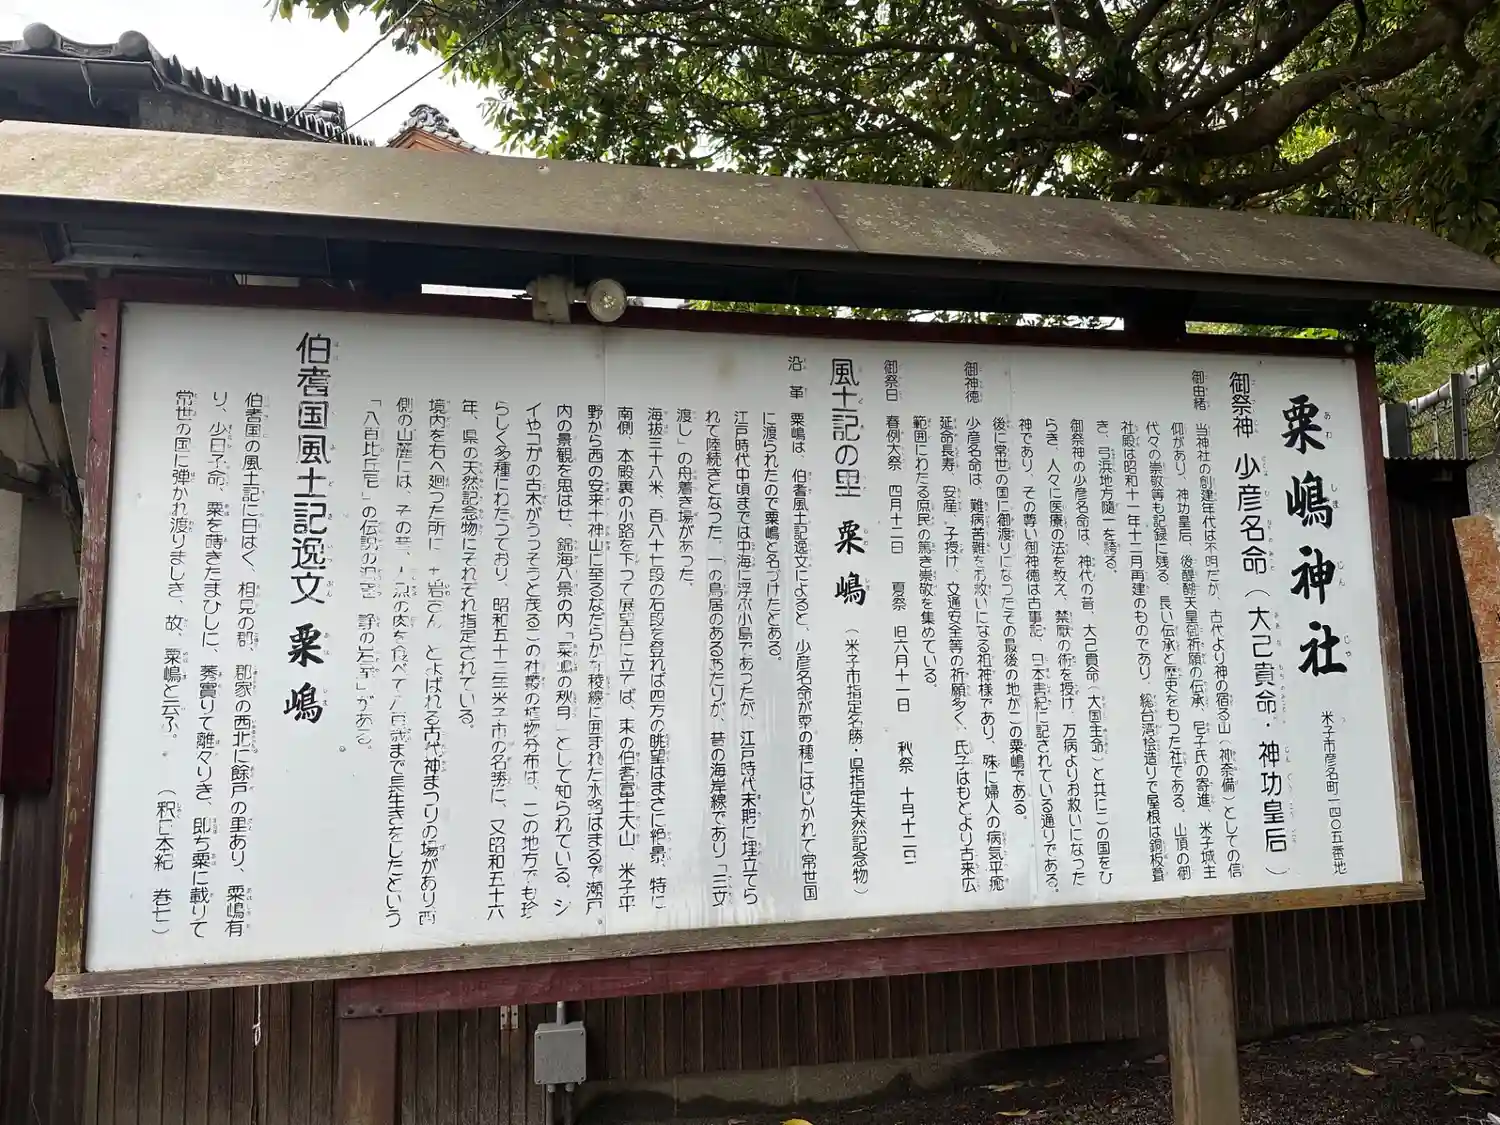 粟嶋神社
米子市彦名町一四〇五番地
御祭神 少彦名命（大己貴命・神功皇后）
御由緒 当神社の創建年代は不明だが、古代より神の宿る山（神奈備）としての信
仰があり、神功皇后、後醍醐天皇御祈願の伝承、尼子氏の寄進、米子城主
代々の崇敬等も記録に残る、長い伝承と歴史をもつ社である。山頂の御
社殿は昭和十一年十二月再建のものであり、総台湾桧造りで屋根は銅板葺
き、弓浜地方随一を誇る。
御祭神の少彦名命は、神代の昔、大己貴命（大国主命）と共にこの国をひ
らき、人々に医療の法を教え、禁厭の術を授け、万病よりお救いになった
神であり、その尊い御神徳は古事記、日本書紀に記されている通りである。
後に常世の国に御渡りになったその最後の地がこの粟嶋である。
御神徳 少彦名命は、難病苦難をお救いになる祖神様であり、殊に婦人の病気平癒
延命長寿、安産、子授け、交通安全等の祈願多く、氏子はもとより古来広
範囲にわたる庶民の篤き崇敬を集めている。
御祭日 春例大祭 四月十二日 夏祭 旧六月十一日 秋祭 十月十二日
風土記の里 粟嶋（米子市指定名勝・県指定天然記念物）
沿革 粟嶋は、伯耆風土記逸文によると、少彦名命が粟の穂にはじかれて常世国
に渡られたので粟嶋と名づけたとある。
江戸時代中頃までは中海に浮ぶ小島であつたが、江戸時代末期に埋立てら
れて陸続きとなつた。一の鳥居のあるあたりが、昔の海岸線であり「三文
渡し」の舟着き場があつた。
海抜三十八米、百八十七段の石段を登れば四方の眺望はまさに絶景、特に
南側、本殿裏の小路を下つて展望台に立てば、東の伯耆富士大山、米子平
野から西の安来十神山に至るなだらかな稜線に囲まれた水路はまるで瀬戸
内の景観を思はせ、錦海八景の内「粟嶋の秋月」として知られている。シ
イやコガの古木がうつそうと茂るこの社叢の植物分布は、この地方でも珍
らしく多種にわたつており、昭和五十三年米子市の名勝に、又昭和五十六
年、県の天然記念物にそれぞれ指定されている。
境内を右へ廻つた所に お岩さん とよばれる古代神まつりの場があり西
側の山麓には、その昔、人魚の肉を食べて八百歳まで長生きをしたという
「八百比丘尼」の伝説の洞窟「静の岩屋」がある。
伯耆国風土記逸文 粟嶋
伯耆国の風土記に曰はく、相見の郡、郡家の西北に餘戸の里あり、粟嶋有
り、少日子命、粟を蒔きたまひしに、莠實りて離々りき、即ち粟に載りて
常世の国に弾かれ渡りましき、故、粟嶋と云ふ。（釈日本紀 巻七）